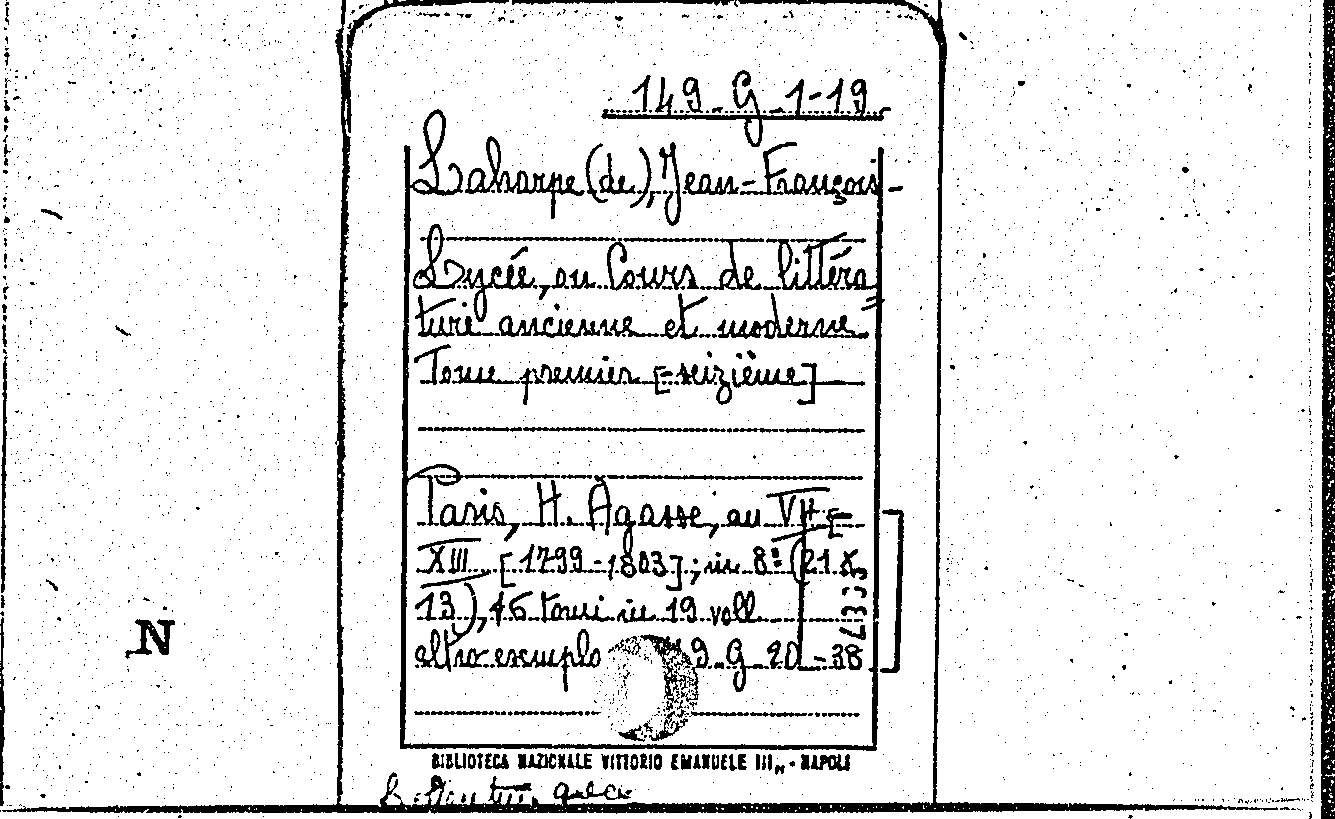 149-G-1-19
Laharpe (de), Jean-François-
Lycée, ou Cours de littéra=
ture ancienne et moderne.
Tome premier [-seizième]
Paris, H. Agasse, au VII [-
XIII [1799-1803]; in 8º (21 X
13), 16 tomi in 19 voll
altro esemplo 9-G-20-38
N
BIBLIOTECA NAZIONALE VITTORIO EMANUELE III„ - NAPOLI